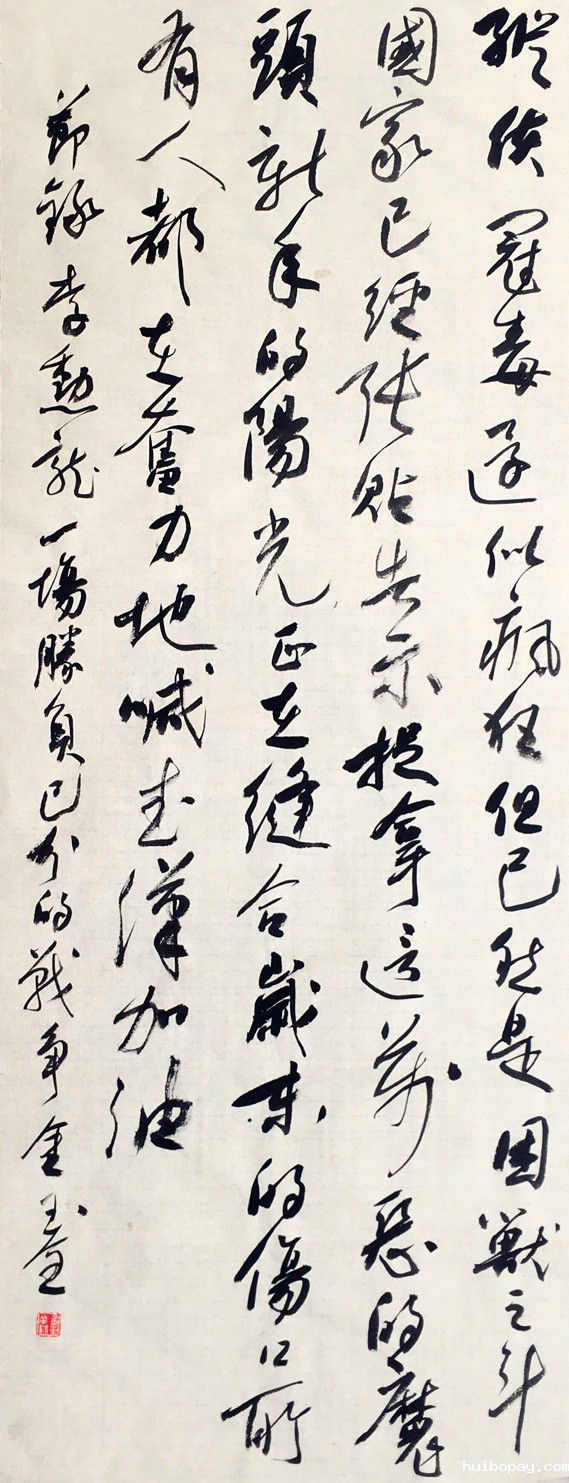 縱使冠毒還似瘋狂但已然是困獸之斗
國家已經張貼告示捉拿這萬惡的魔
頭新年的陽光正在縫合歲末的傷口所
有人都在奮力地喊武漢加油
節錄李勳龍一場勝負已分的戰爭金玉奎
huibopay.com